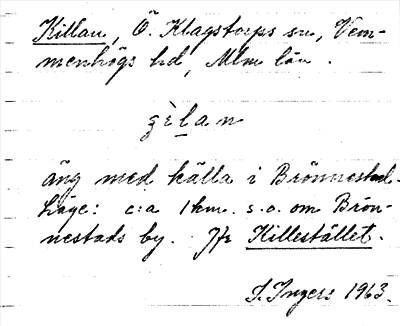 Killan, Ö. Klagstorps sn, Vem-
menhögs hd, Mlm län.
äng med källa i Brönnestad.
Läge: c:a 1km. s.o. om Brön-
nestads by. Jfr Killestället.
I. Ingers 1963.